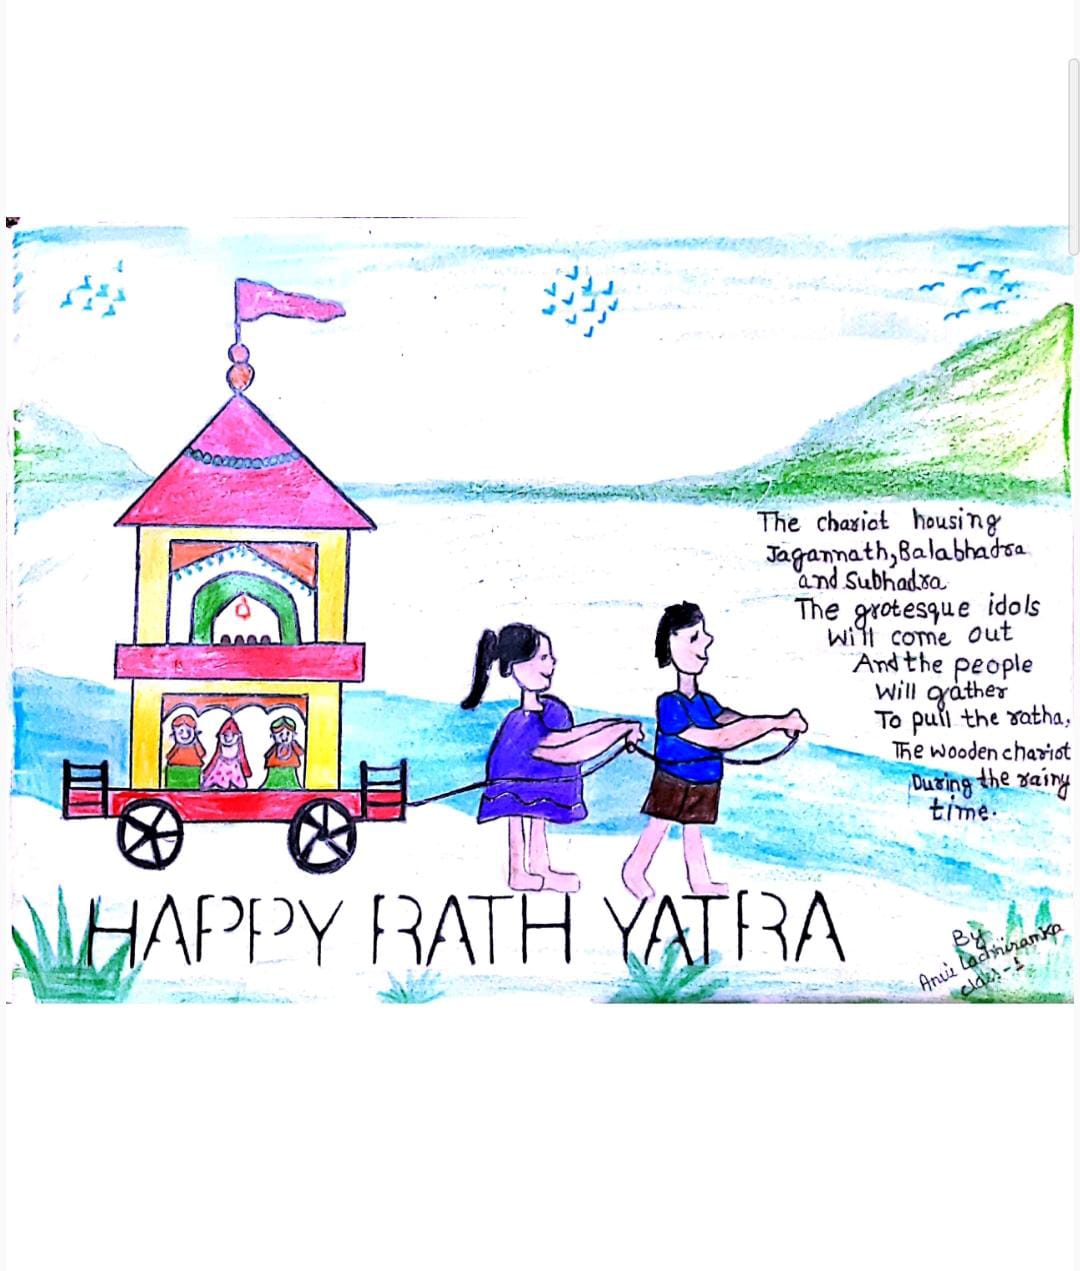 The chariot housing
Jagannath, Balabhadra
and Subhadra
The grotesque idols
Will come out
And the people
Will gather
To pull the ratha,
The wooden chariot
During the rainy
time.
HAPPY RATH YATRA
By
class-1